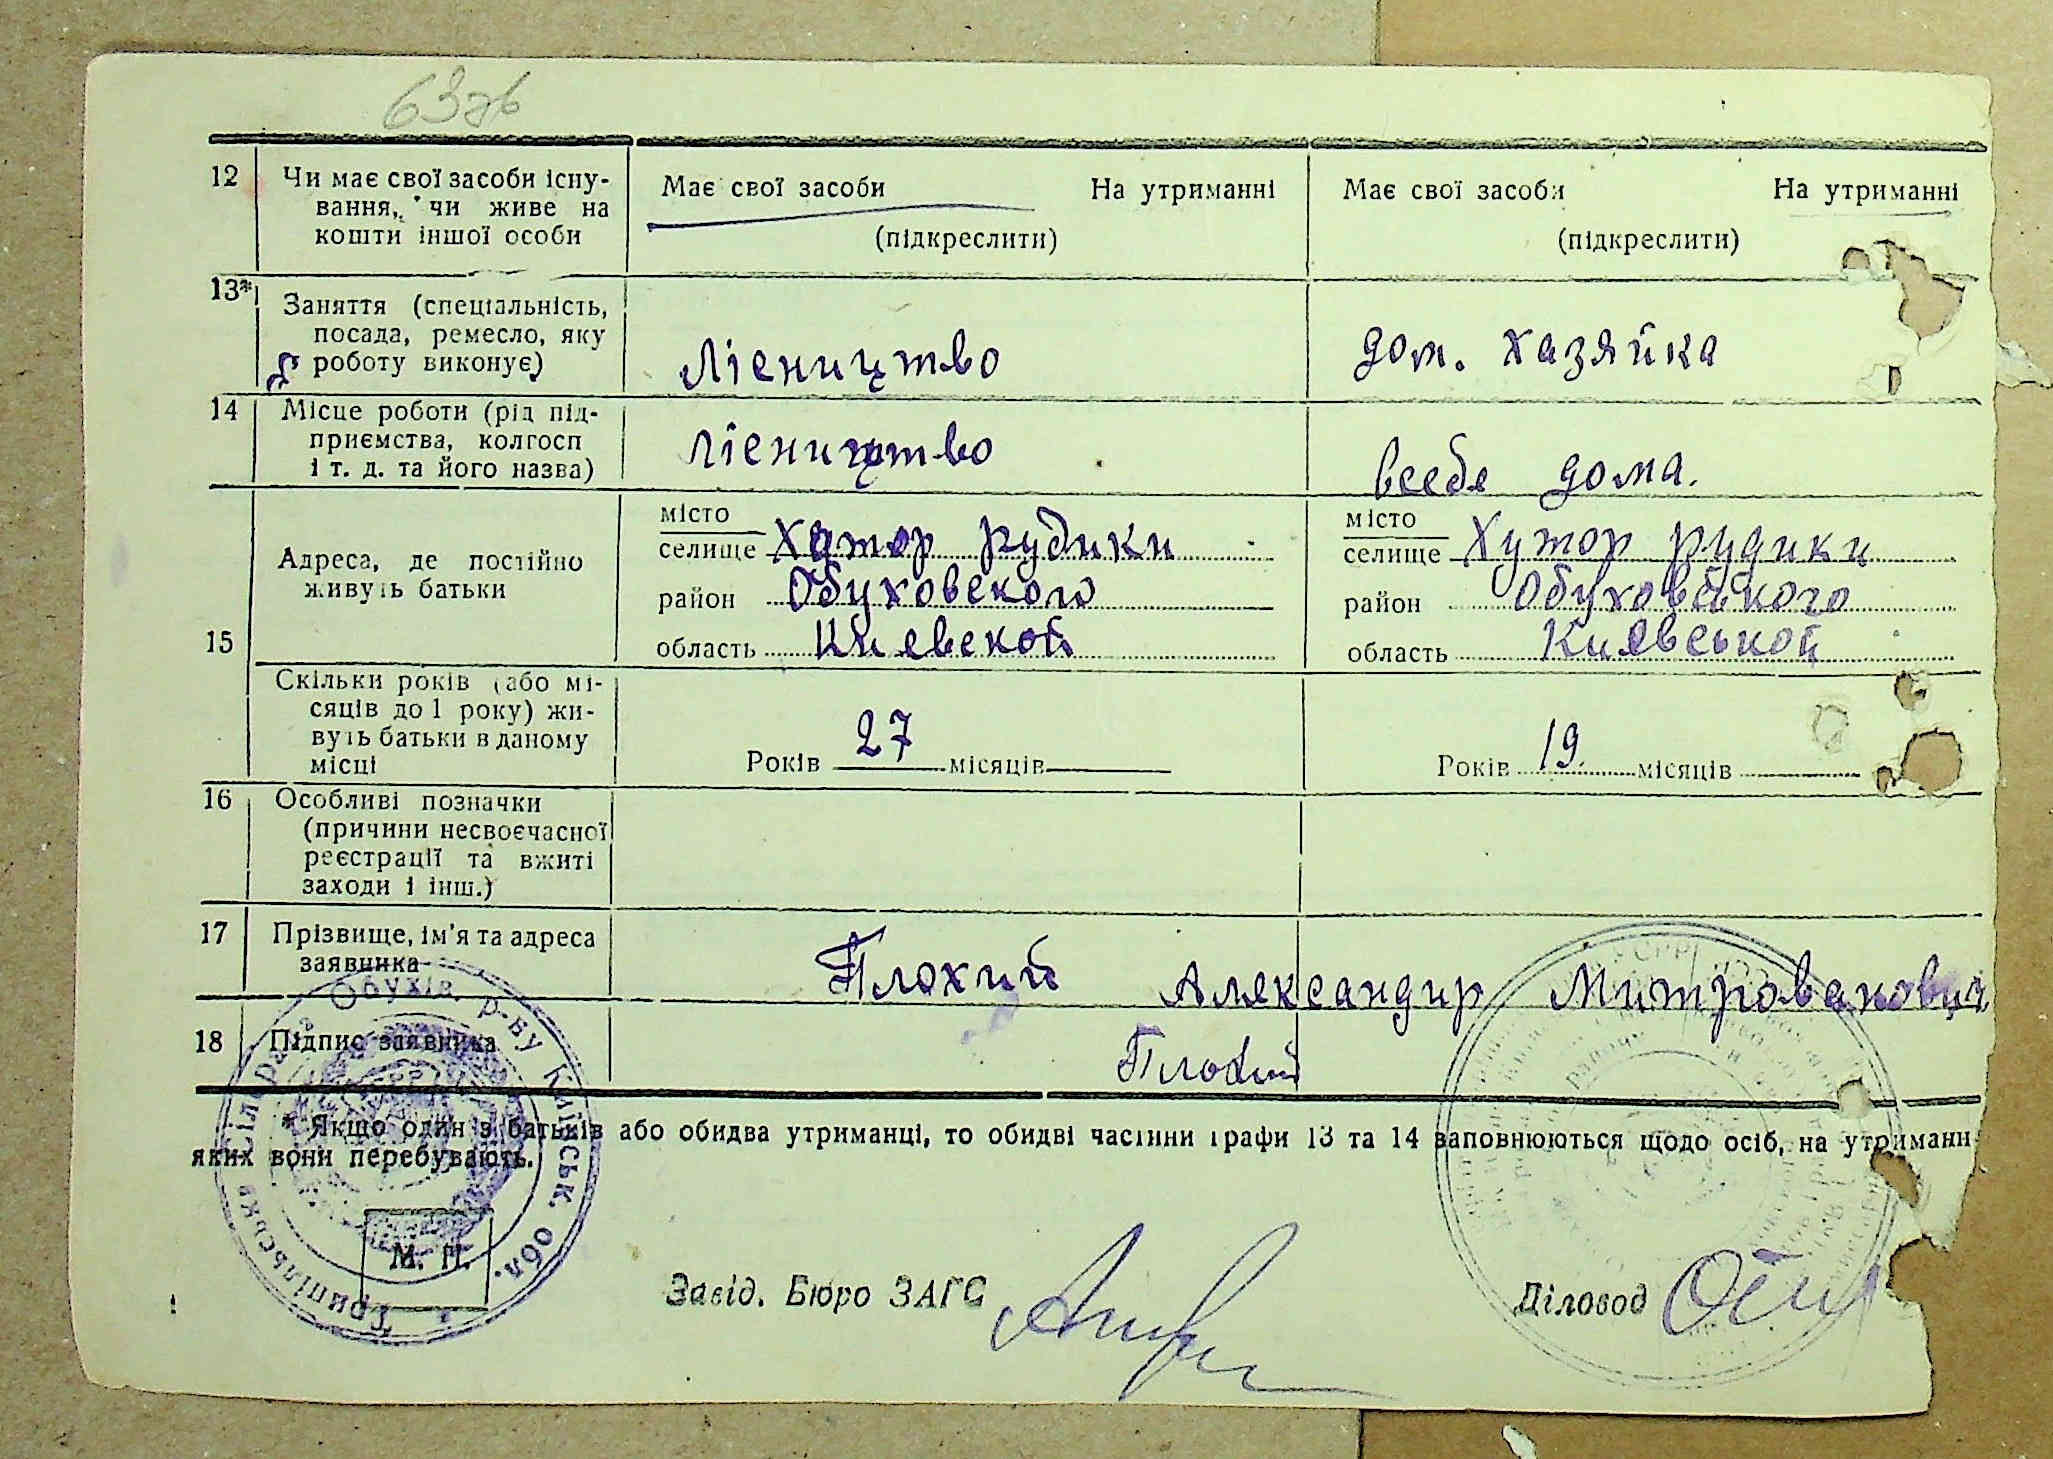 63зв
12 Чи має свої засоби існу-
вання, чи живе на
кошти іншої особи
Має свої засоби На утриманні
(підкреслити)
Має свої засоби На утриманні
(підкреслити)
13* Заняття (спеціальність,
посада, ремесло, яку
роботу виконує)
Лісництво
дом. хазяйка
14 Місце роботи (рід під-
приємства, колгосп
і т. д. та його назва)
лісництво
всебе дома.
15
Адреса, де постійно
живуть батьки
місто
селище Хутор рудики
район Обуховского
область Киевской
місто
селище Хутор рудики
район Обуховського
область Киявськой
Скільки років (або мі-
сяців до 1 року) жи-
вуть батьки в даному
місці
Років 27 місяців
Років 19. місяців
16 Особливі позначки
(причини несвоєчасної
реєстрації та вжиті
заходи і інш.)
17 Прізвище, ім'я та адреса
заявника
Плохий Александир Митрованович
18 Підпис заявника
Плохий
* Якщо один з батьків або обидва утриманці, то обидві частини графи 13 та 14 заповнюються щодо осіб, на утриманні
яких вони перебувають.
М. П.
Завід. Бюро ЗАГС
Діловод
Трипільська сільрада Обухів. р-ну Київськ. обл.